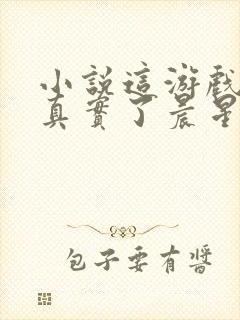 小說這游戲
真實了晨星
包子要有醬